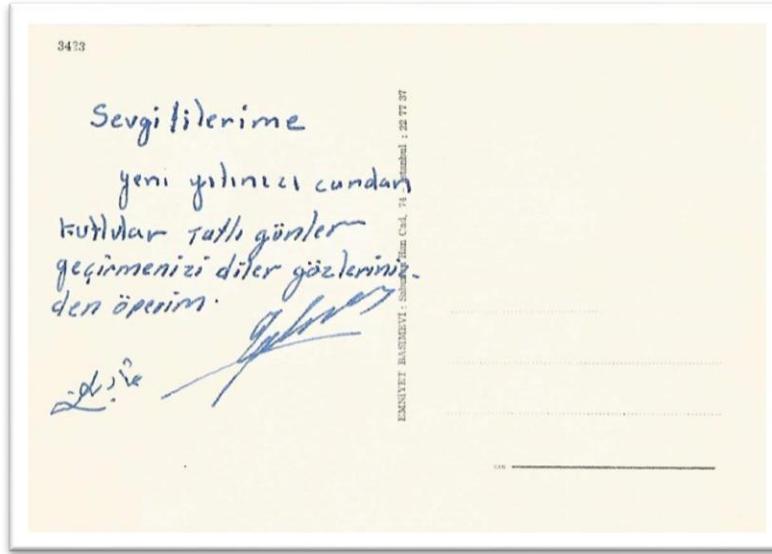 3423
Sevgililerime
yeni yılınızı candan
kutlular tatlı günler
geçirmenizi diler gözleriniz-
den öperim.
EMNİYET BASIMEVİ : Han Cad. 74 İstanbul : 22 77 37